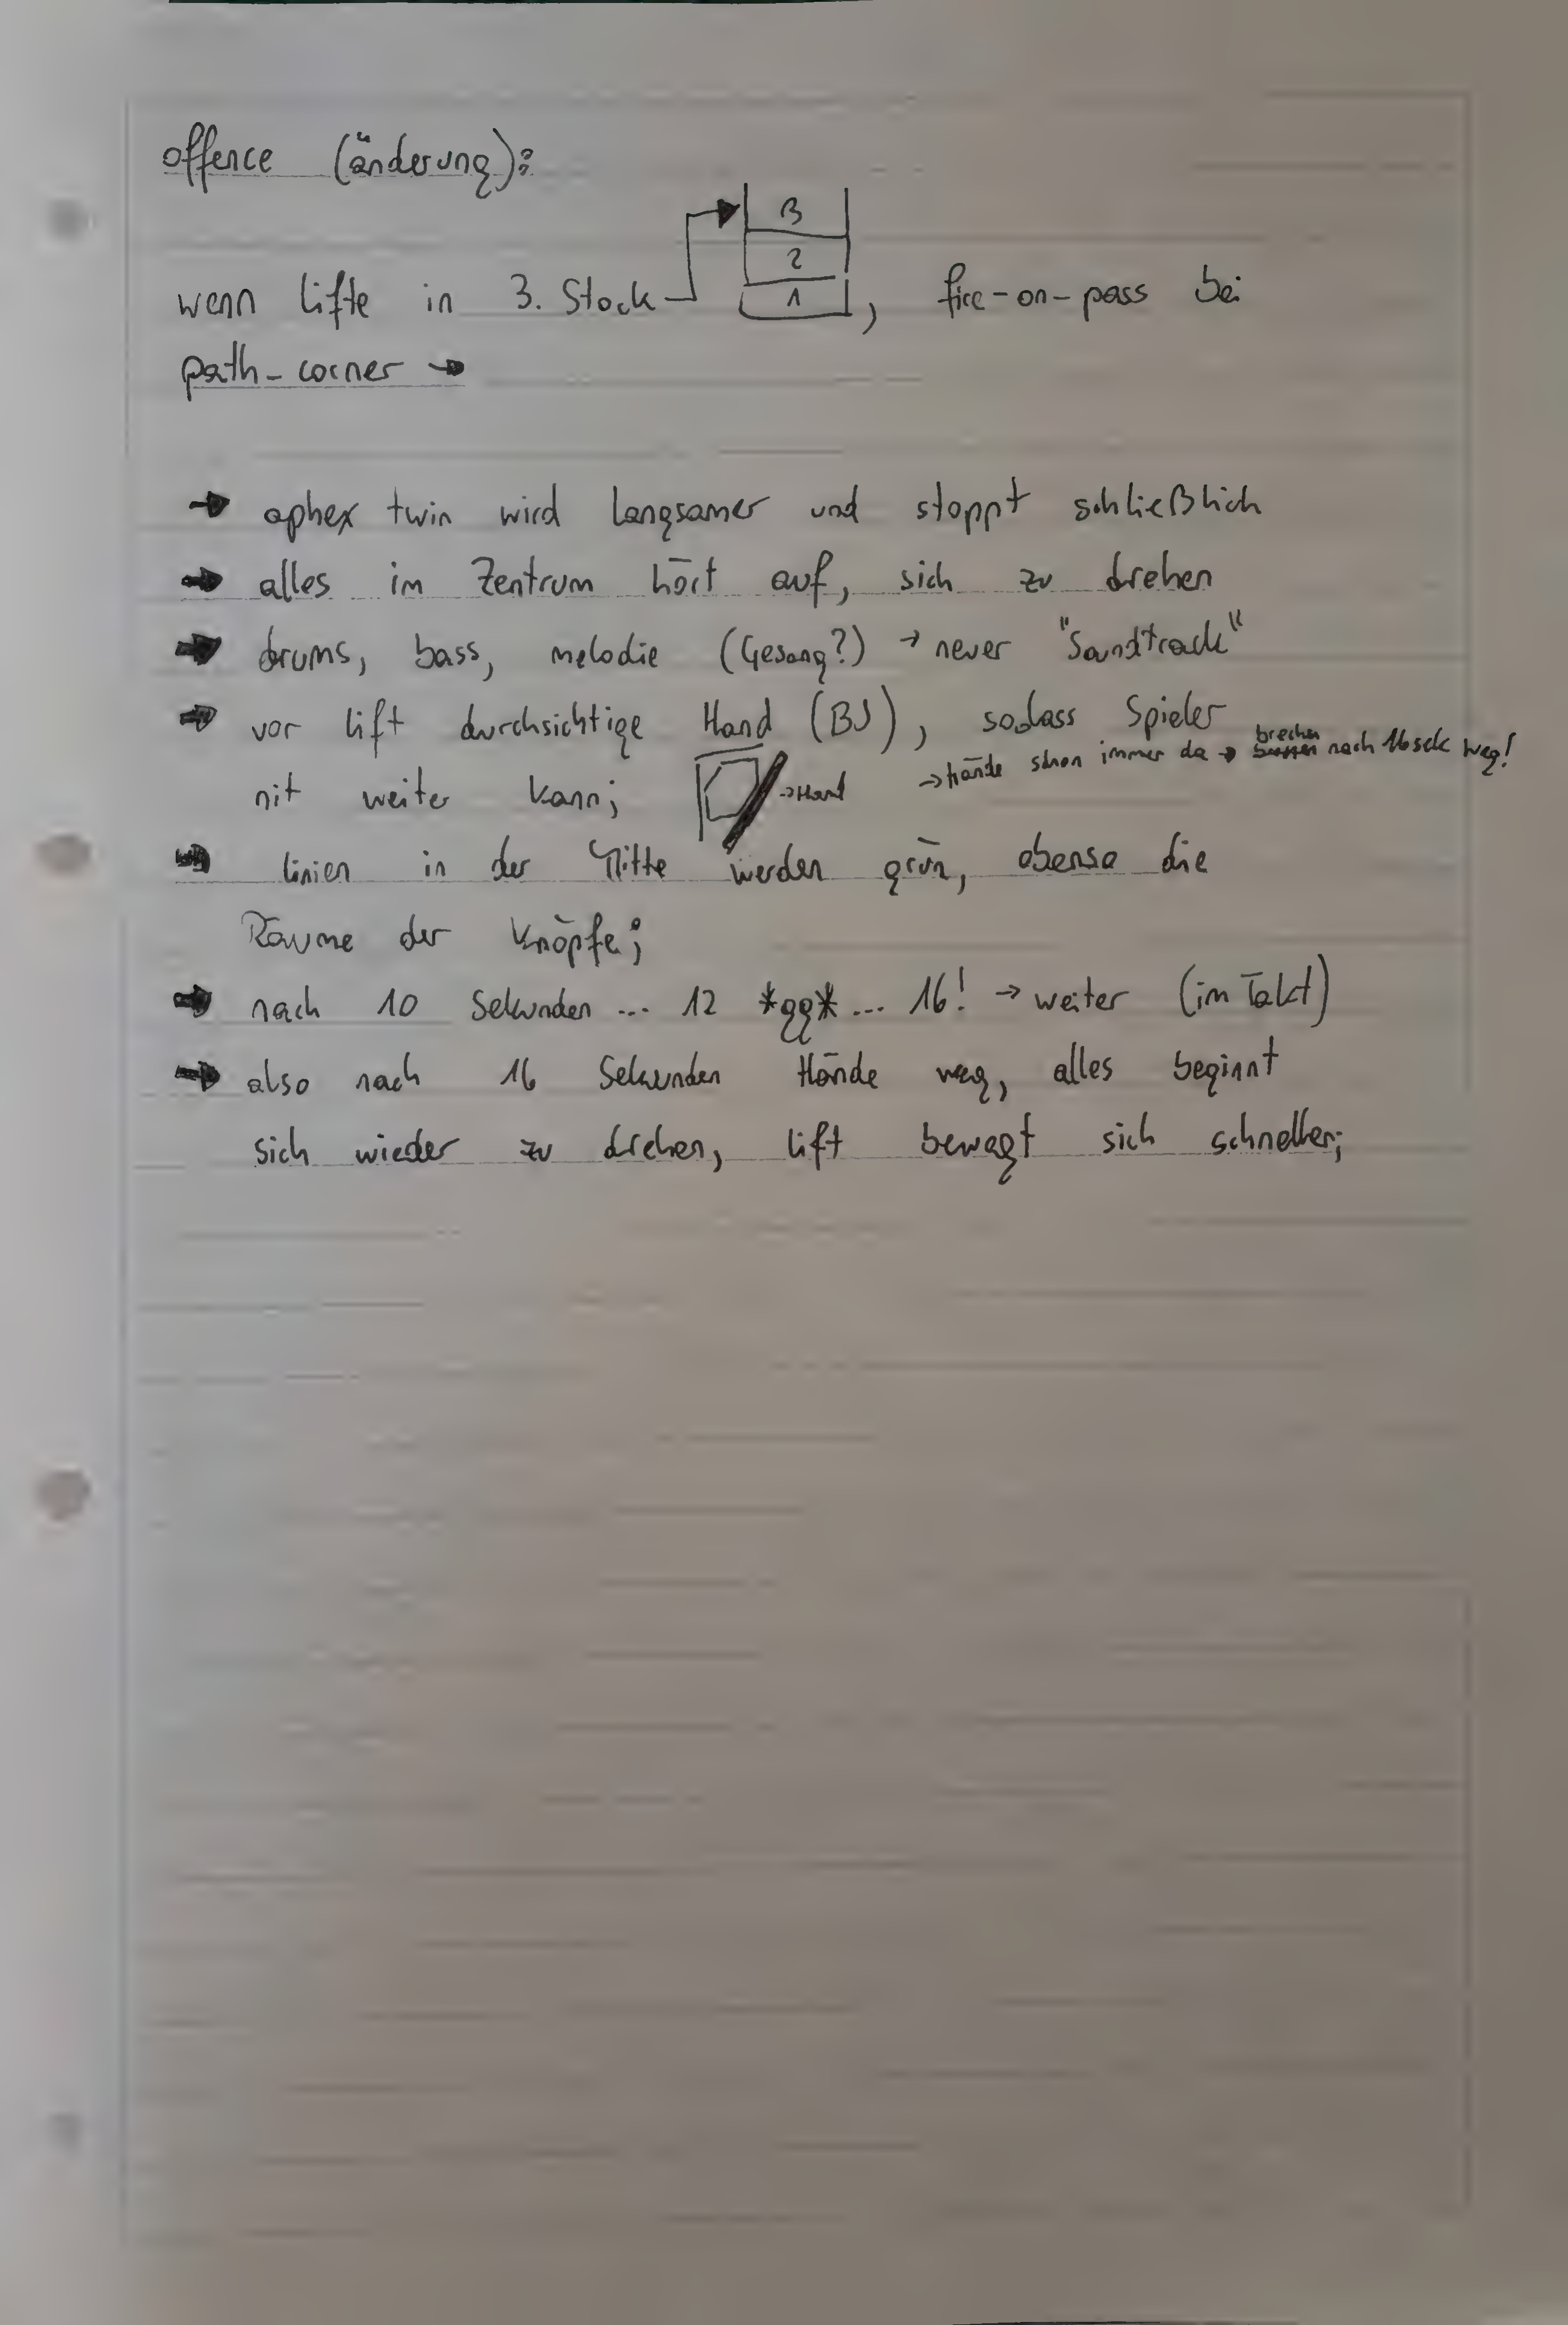 offence (änderung):
3
2
1
wenn lifte in 3. Stock , fire-on-pass bei
path-corner →
→ aphex twin wird langsamer und stoppt schließlich
→ alles im Zentrum hört auf, sich zu drehen
→ drums, bass, melodie (Gesang?) → neuer "Soundtrack"
→ vor lift durchsichtige Hand (BJ), sodass Spieler
nit weiter kann; → Hand → hände schon immer da → brechen nach 16sek weg!
→ linien in der Mitte werden grün, ebenso die
Räume der Knöpfe;
→ nach 10 Sekunden ... 12 *gg* ... 16! → weiter (im Takt)
→ also nach 16 Sekunden Hände weg, alles beginnt
sich wieder zu drehen, lift bewegt sich schneller;